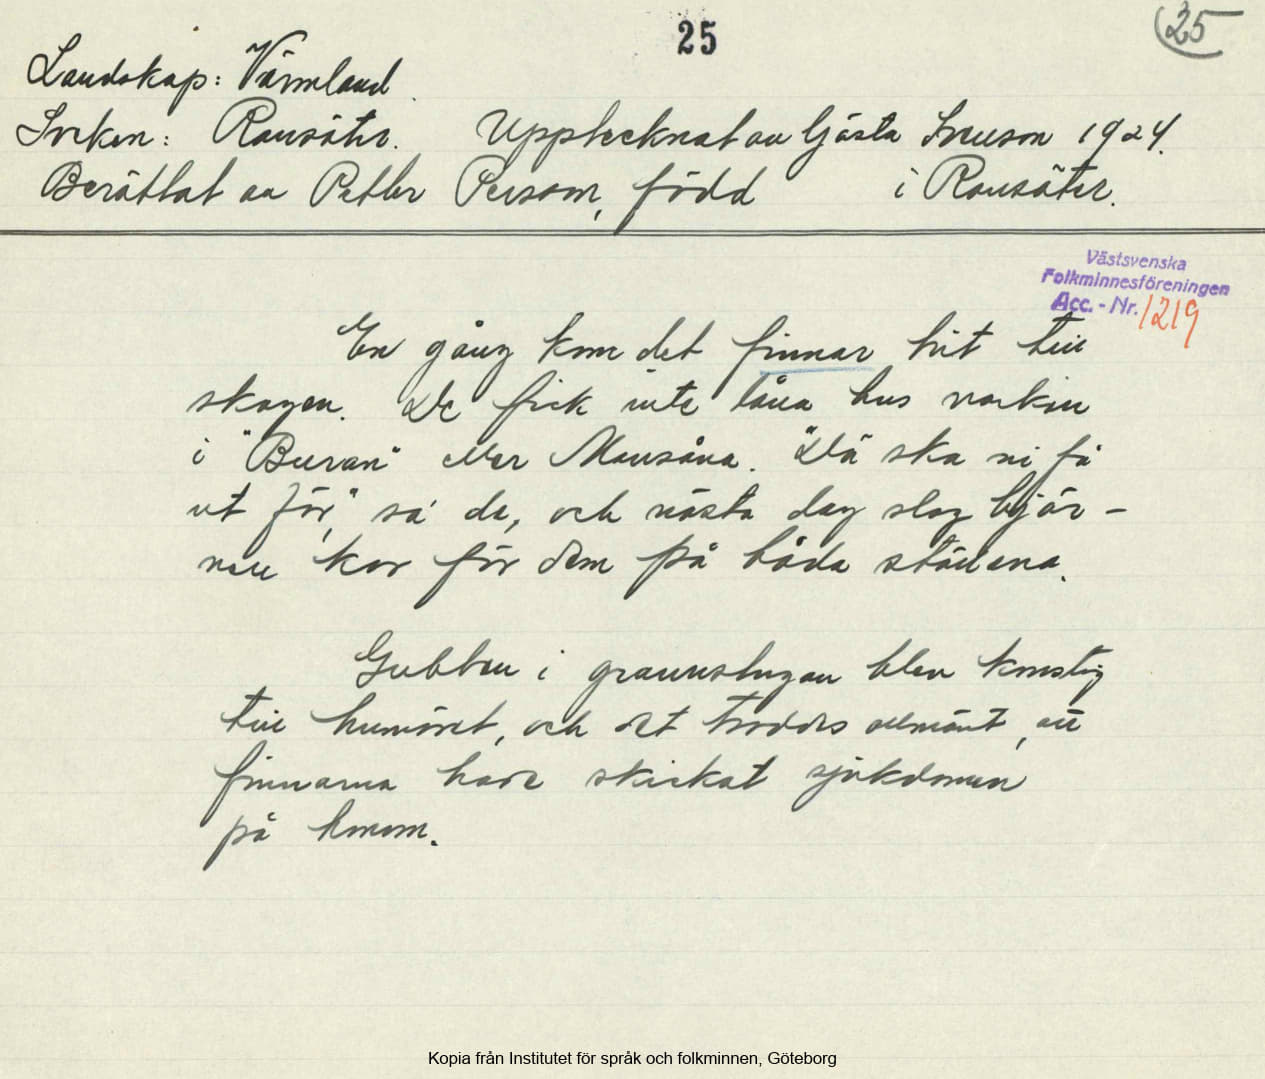 25
25
Landskap: Värmland.
Socken: Ransäter. Upptecknat av Gösta Ivenson 1924.
Berättat av Petter Person, född i Ransäter.
Västsvenska
Folkminnesföreningen
Acc. - Nr. 1219
En gång kom det finnar hit till
skogen. De fick inte låna hus varken
i "Buran" eller Mansåna. "Dä ska ni få
ut för," sa de, och nästa dag slog björ-
nen kor för dem på båda ställena.
Gubben i grannstugan blev konstig
till humöret, och det troddes allmänt, att
finnarna hade skickat sjukdomen
på honom.
Kopia från Institutet för språk och folkminnen, Göteborg